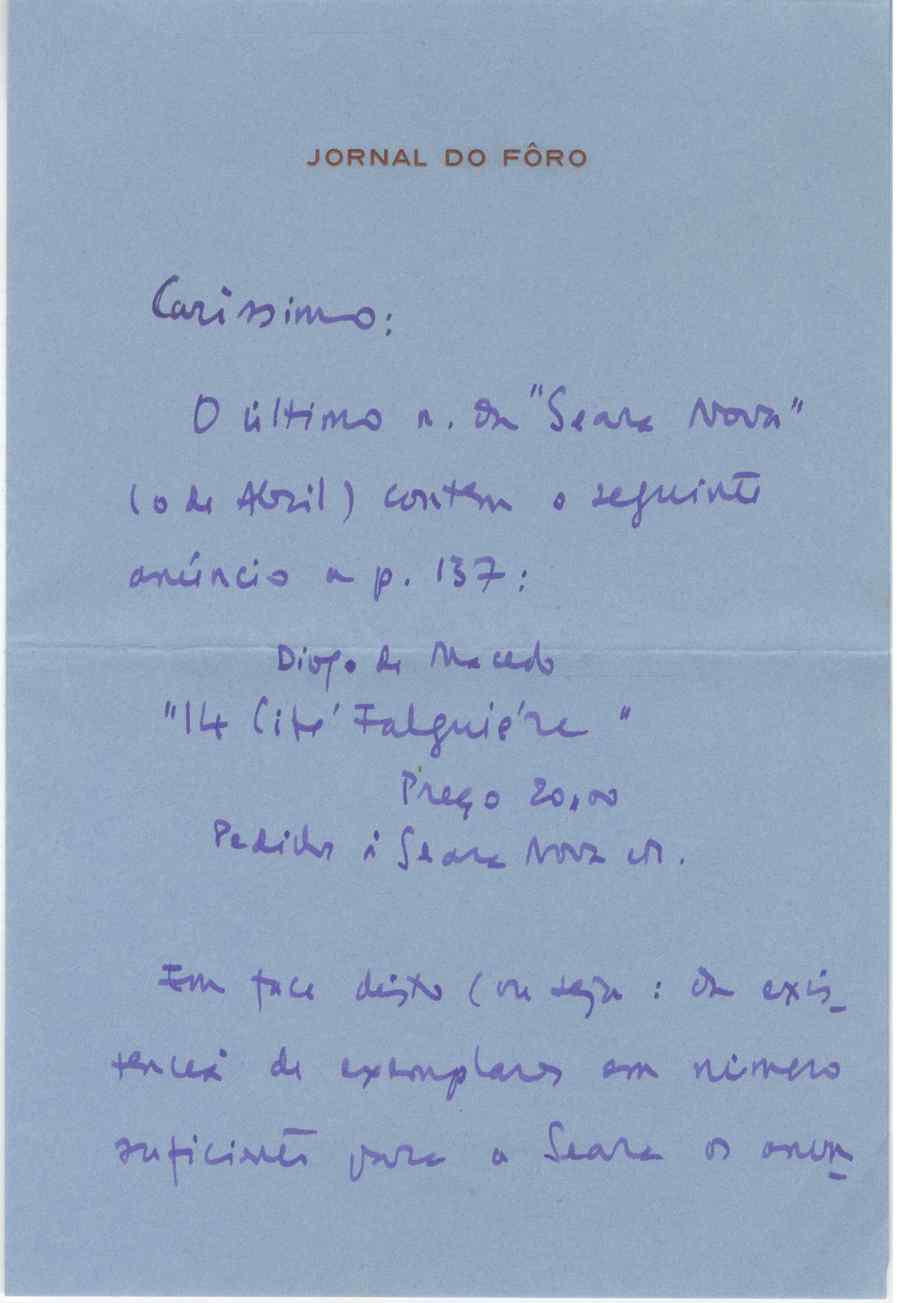 JORNAL DO FÔRO
Caríssimo:
O último n. da "Seara Nova"
(o de Abril) contém o seguinte
anúncio a p. 137:
Diogo de Macedo
"14 Cité Falguière"
Preço 20,00
Pedidos à Seara Nova etc.
Em face disto (ou seja: da exis_
tencia de exemplares em número
suficiente para a Seara os anun_